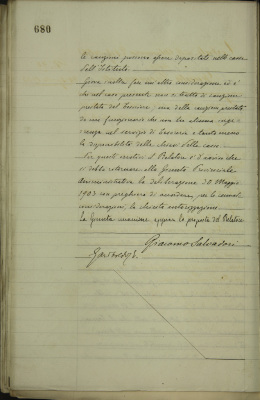 680
le cauzioni possono essere depositate nelle casse
dell'Istituto.
Giova inoltre fare un'altra considerazione ed è
che nel caso presente non si tratta di cauzione
prestata dal Tesoriere, ma della cauzione prestata
da un funzionario che non ha alcuna inge-
renza nel servizio di Tesoreria e tanto meno
la disponibilità delle chiavi della cassa.
Per questi motivi il Relatore è d'avviso che
si debba ritornare alla Giunta Provinciale
Amministrativa la deliberazione 26 Maggio
1903 con preghiera di accordare, per le
considerazioni, la chiesta autorizzazione.
La Giunta unanime approva la proposta del Relatore.
Giacomo Salvadori